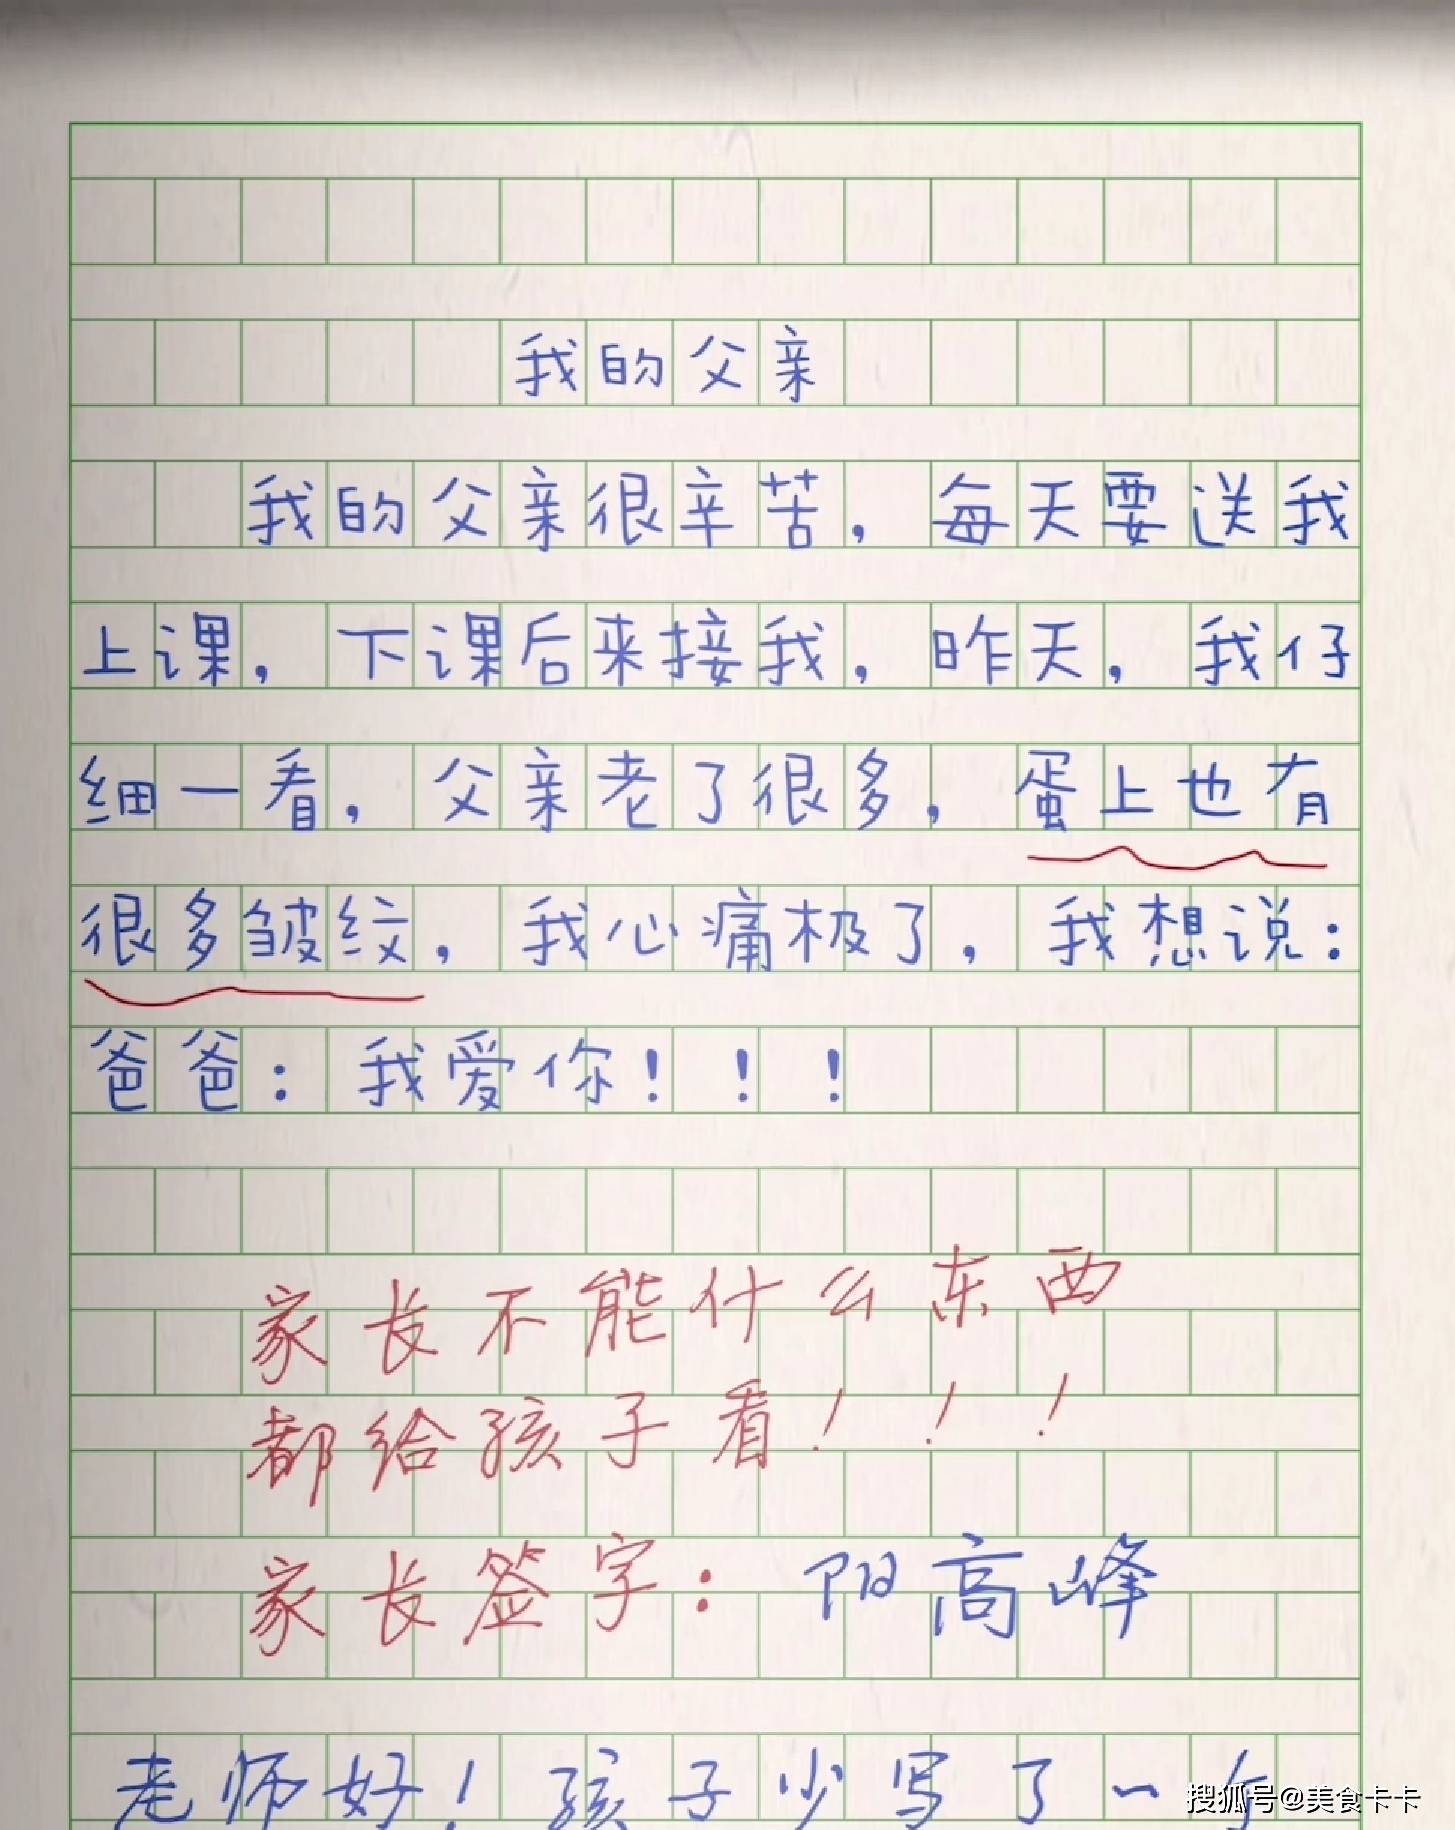 我的父亲
我的父亲很辛苦，每天要送我
上课，下课后来接我，昨天，我仔
细一看，父亲老了很多，蛋上也有
很多皱纹，我心痛极了，我想说：
爸爸：我爱你！！！
家长不能什么东西
都给孩子看！！！
家长签字：阳高峰
老师好！孩子少写了一
搜狐号@美食卡卡